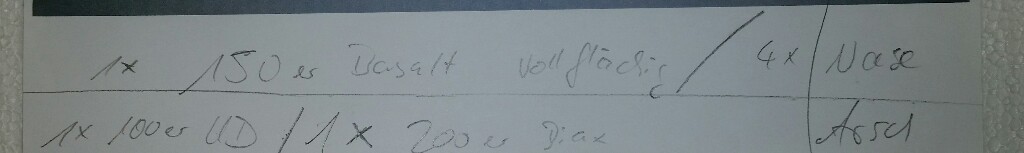 1x 150er Basalt vollflächig / 4x Nase
1x 100er UD / 1x 200er Biax Arsch